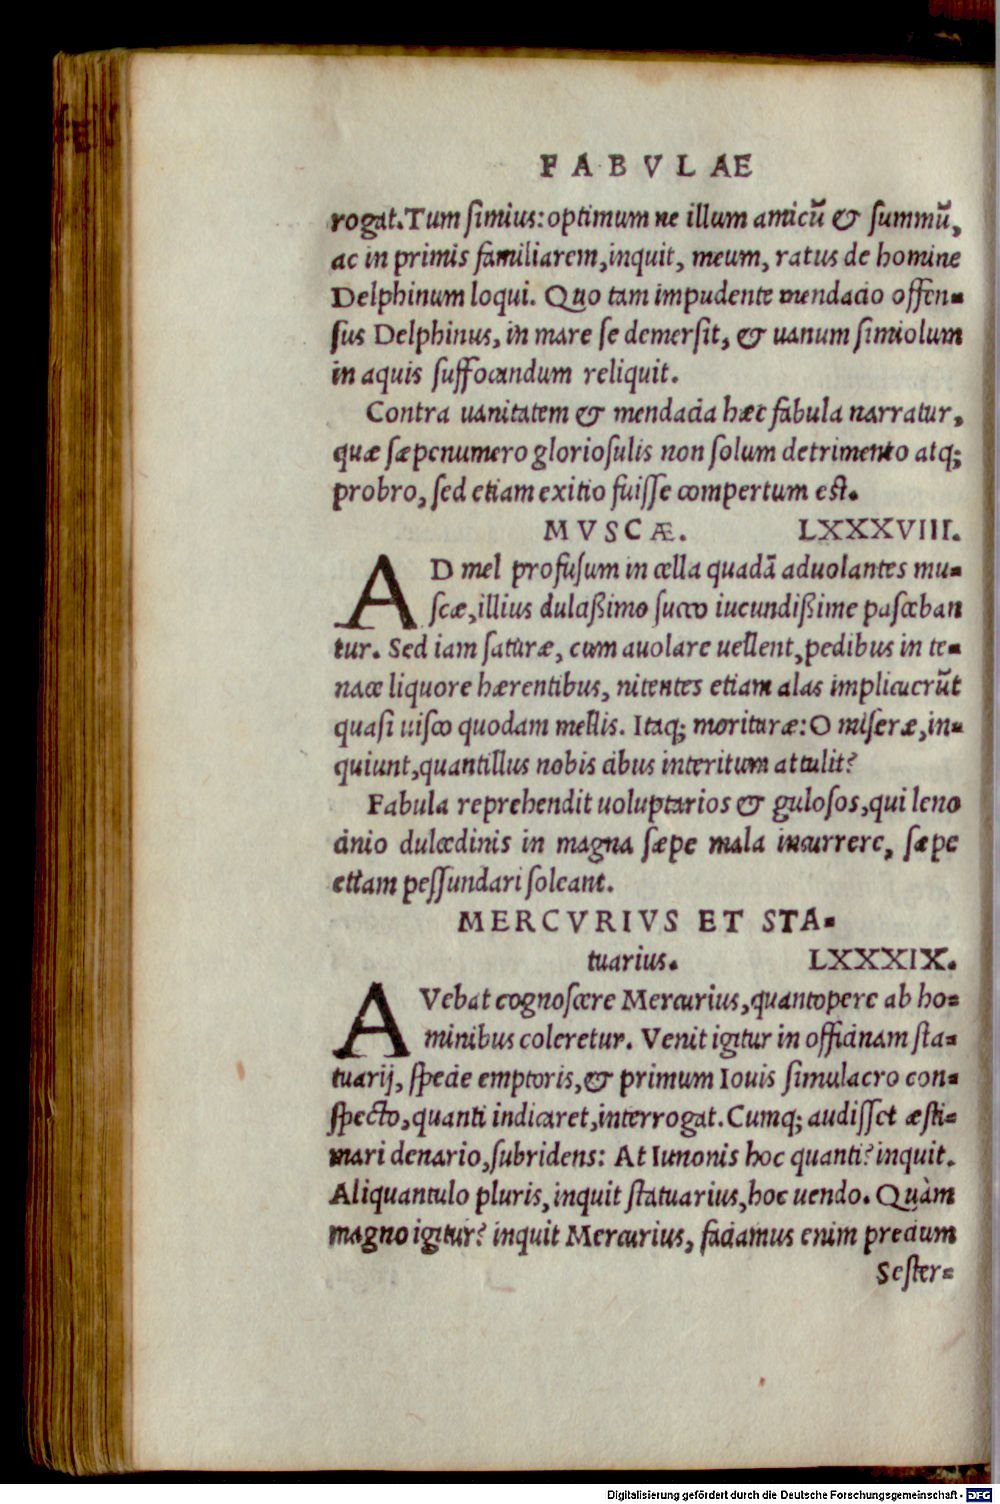 FABVLAE
rogat. Tum simius: optimum ne illum amicũ & summũ,
ac in primis familiarem, inquit, meum, ratus de homine
Delphinum loqui. Quo tam impudente mendacio offen-
sus Delphinus, in mare se demersit, & uanum simiolum
in aquis suffocandum reliquit.
Contra uanitatem & mendacia hæc fabula narratur,
quæ sæpenumero gloriosulis non solum detrimento atq;
probro, sed etiam exitio fuisse compertum est.
MVSCÆ. LXXXVIII.
AD mel profusum in cella quadã aduolantes mu-
scæ, illius dulcißimo succo iucundißime pasceban
tur. Sed iam saturæ, cum auolare uellent, pedibus in te-
nace liquore hærentibus, nitentes etiam alas implicucrũt
quasi uisco quodam mellis. Itaq; morituræ: O miseræ, in-
quiunt, quantillus nobis cibus interitum attulit?
Fabula reprehendit uoluptarios & gulosos, qui leno
cinio dulcedinis in magna sæpe mala incurrere, sæpe
etiam pessundari soleant.
MERCVRIVS ET STA-
tuarius. LXXXIX.
AVebat cognoscere Mercurius, quantopere ab ho-
minibus coleretur. Venit igitur in officinam sta-
tuarij, specie emptoris, & primum Iouis simulacro con-
specto, quanti indicaret, interrogat. Cumq; audisset æsti-
mari denario, subridens: At Iunonis hoc quanti? inquit.
Aliquantulo pluris, inquit statuarius, hoc uendo. Quàm
magno igitur? inquit Mercurius, faciamus enim precium
Sester-
Digitalisierung gefördert durch die Deutsche Forschungsgemeinschaft - DFG